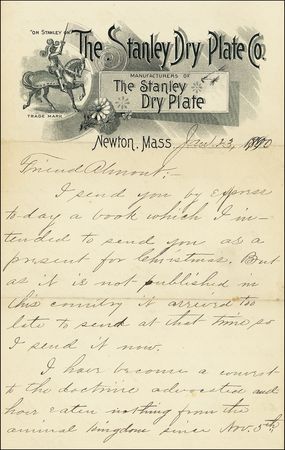 "ON STANLEY ON"
The Stanley Dry Plate Co.
MANUFACTURERS OF
The Stanley
Dry Plate
TRADE MARK
Newton, Mass Jan. 23, 1890
Friend Almont,-
I send you by express
to day a book which I in-
tended to send you as a
present for Christmas. But
as it is not published in
this country it arrived too
late to send at that time, so
I send it now.
I have become a convert
to the doctrine advocated and
have eaten nothing from the
animal kingdom since Nov. 5th,